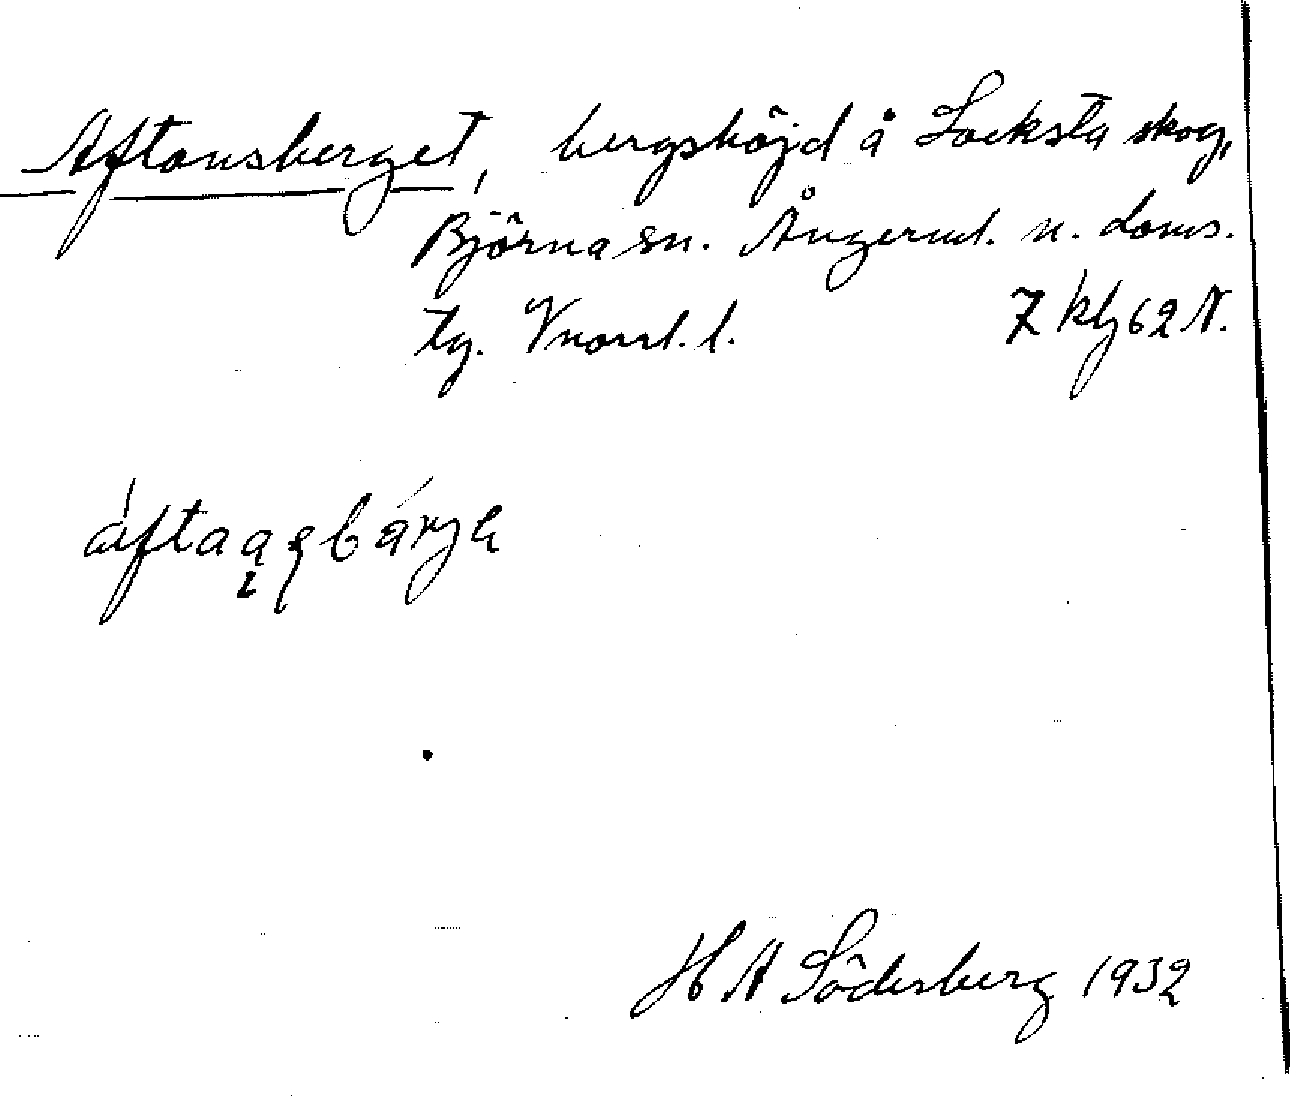 Aftonsberget, bergshöjd å Locksta skog,
Björna sn. Ångerml. n. doms.
tg. Vnorrl. l. 7 kbl 62 N.
H A Söderberg 1932